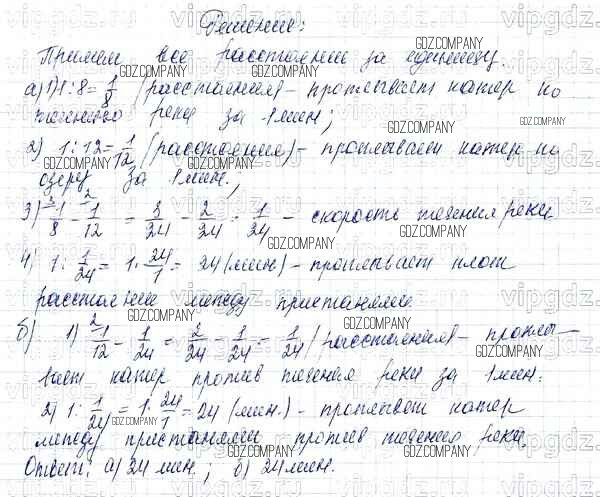 Решение:
Примем все расстояние за единицу.
а) 1) 1 : 8 = 1/8 (расстояния) – проплывает катер по
течению реки за 1 мин;
2) 1 : 12 = 1/12 (расстояния) – проплывает катер по
озеру за 1 мин.;
3) 1/8 - 1/12 = 3/24 - 2/24 = 1/24 – скорость течения реки
4) 1 : 1/24 = 1 · 24/1 = 24 (мин) – проплывает плот
расстояние между пристанями
б) 1) 1/12 - 1/24 = 2/24 - 1/24 = 1/24 (расстояния) – проплы-
вает катер против течения реки за 1 мин.
2) 1 : 1/24 = 1 · 24/1 = 24 (мин.) – проплывет катер
между пристанями против течения реки.
Ответ: а) 24 мин.; б) 24 мин.
GDZ.COMPANY
vipgdz.